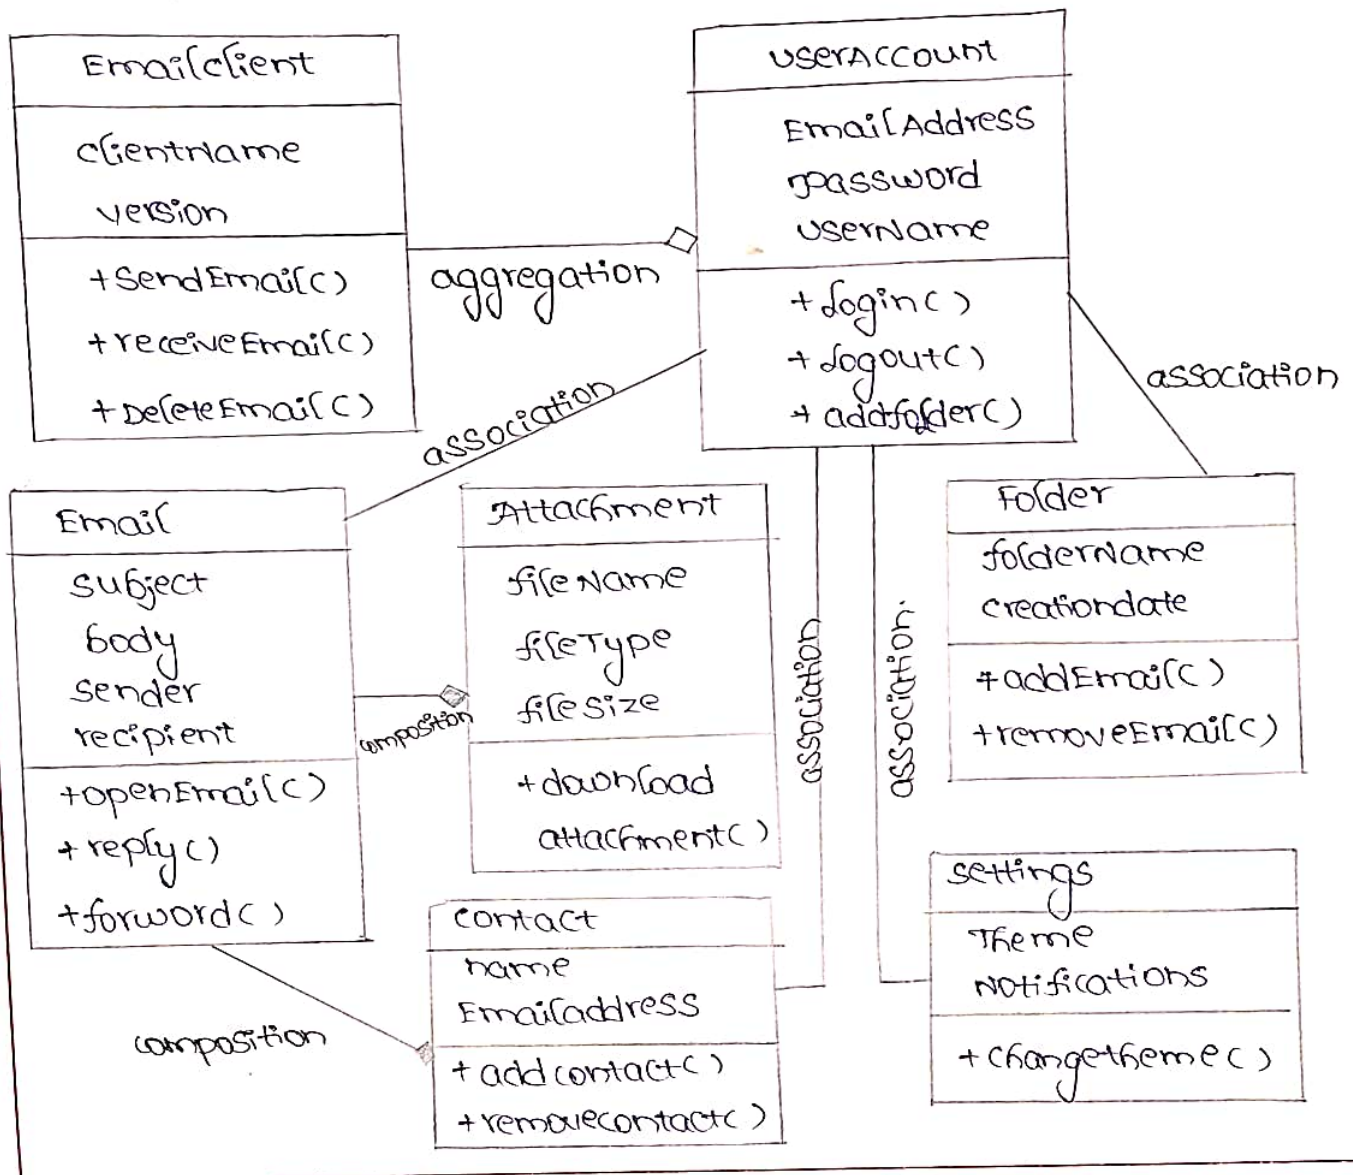 EmailClient
clientName
version
+SendEmail()
+receiveEmail()
+DeleteEmail()
aggregation
userAccount
EmailAddress
password
userName
+login()
+logout()
+addfolder()
association
association
Email
subject
body
sender
recipient
+openEmail()
+reply()
+forword()
composition
Attachment
fileName
fileType
fileSize
+download
attachment()
association
association.
Folder
folderName
creationdate
+addEmail()
+removeEmail()
composition
contact
name
Emailaddress
+addcontact()
+removecontact()
settings
Theme
Notifications
+changetheme()